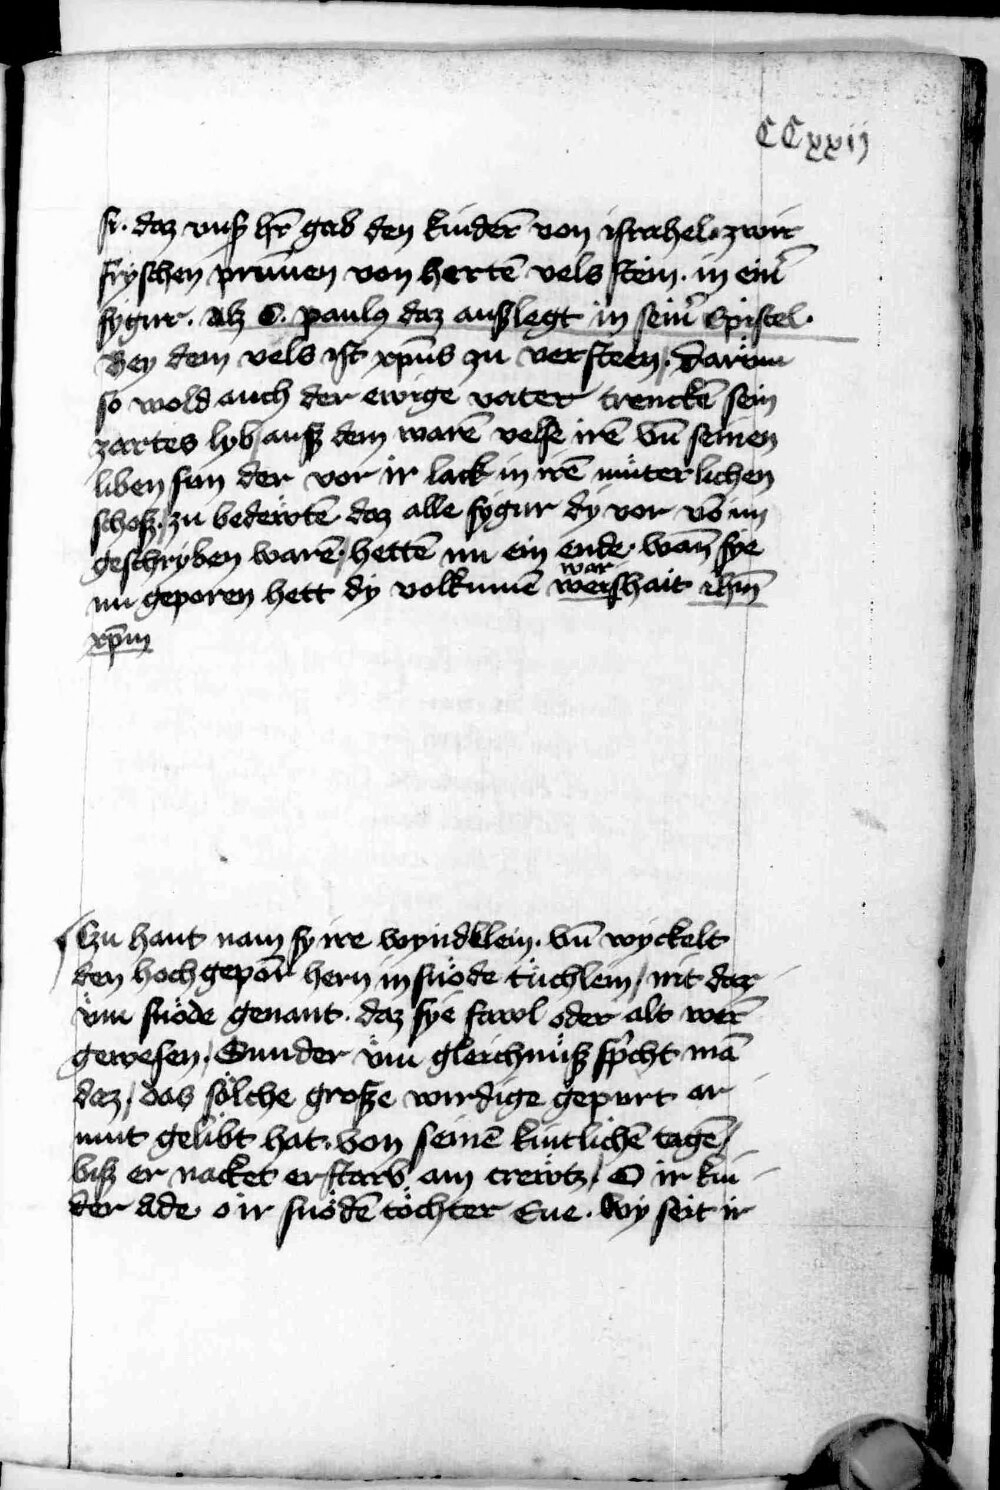 CCxxij
si. daz vnß hr̄ gab den kinderē von israhel. zwir
fryschen prun̄en von hertē vels stein. in ein̄
fygur. Alz S. paulꝯ daz außlegt in sein̄ Epistel.
Bey dem vels ist xp̄us zu versteen. Darüm
so wold auch der ewige vater trenckē sein
zartes lyb auß dem warē velse irē vn̄ seinen
liben sun der vor ir lack in irē müterlichen
schoß. zu bedeẅtē daz alle fygur dy vor vō im
geschryben warē, hettē nu ein ende. wan̄ sye
war
nu geporen hett dy volkumē wershait ihm̄
xp̄m
Czu hant nam sy ire wyndklein. vn̄ wyckelt
den hochgepor̄ hern in snöde tüchlein, nit dar
vm̈ snöde genant. daz sye fawl oder alt wer̄
gewesen, Sunder vm̈ gleichnüß sp̄cht mā
daz, das sölche große wirdige gepurt ar
mut gelibt hat. von seinē kintlichē tagē
biß er nacket erstarb am creẅtz, O ir kin
der Ade o ir snödē töchter Eue. wy seit ir